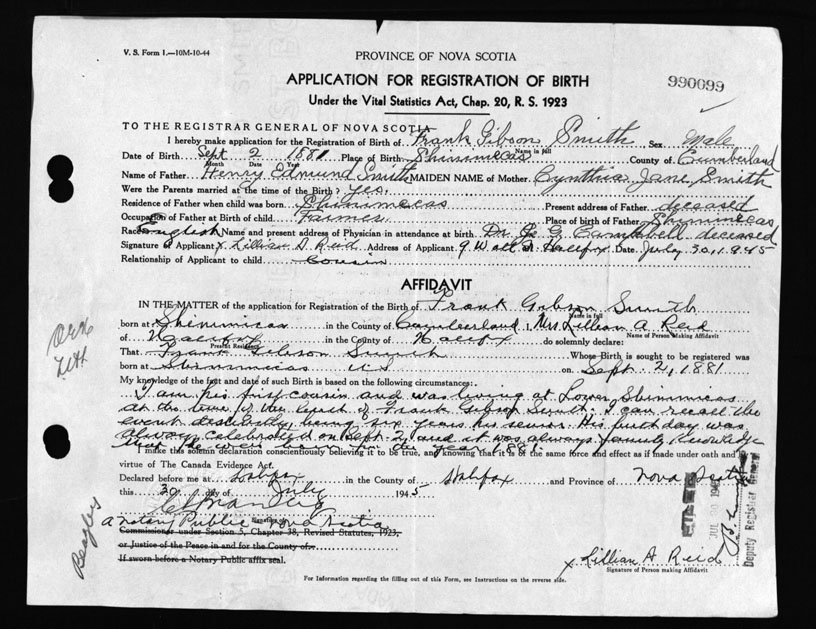 V. S. Form 1.—10M-10-44
PROVINCE OF NOVA SCOTIA
990099
APPLICATION FOR REGISTRATION OF BIRTH
Under the Vital Statistics Act, Chap. 20, R. S. 1923
TO THE REGISTRAR GENERAL OF NOVA SCOTIA
I hereby make application for the Registration of Birth of Frank Gibson Smith Sex Male
Name in full
Date of Birth Sept 2 1881 Place of Birth Shinimecas County of Cumberland
Month Date Year
Name of Father Henry Edmund Smith MAIDEN NAME of Mother Cynthia Jane Smith
Were the Parents married at the time of the Birth? yes.
Residence of Father when child was born Shinimecas Present address of Father deceased
Occupation of Father at Birth of child Farmer Place of birth of Father Shinimecas
Race English Name and present address of Physician in attendance at birth Dr. G. Campbell deceased
Signature of Applicant x Lillian A Reid Address of Applicant 9 Wall St Halifax Date July 30, 1945
Relationship of Applicant to child Cousin
AFFIDAVIT
IN THE MATTER of the application for Registration of the Birth of Frank Gibson Smith
Name in full
born at Shinimicas in the County of Cumberland I, Mrs Lillian A Reid
Name of Person Making Affidavit
of Halifax in the County of Halifax do solemnly declare:
Present Residence
That Frank Gibson Smith Whose Birth is sought to be registered was
born at Shinimicas N.S. on Sept. 2, 1881
My knowledge of the fact and date of such Birth is based on the following circumstances:
I am his first cousin and was living at Lower Shinimicas
at the time of the birth of Frank Gibson Smith. I can recall the
event distinctly, being six years his senior. His birthday was
always celebrated on Sept. 2, and it was always family knowledge
that he was born in the year 1881.
I make this solemn declaration conscientiously believing it to be true, and knowing that it is of the same force and effect as if made under oath and by
virtue of The Canada Evidence Act.
Declared before me at Halifax in the County of Halifax and Province of Nova Scotia
this 30 day of July 1945
A Notary Public Nova Scotia
Commissioner under Section 5, Chapter 38, Revised Statutes, 1923,
or Justice of the Peace in and for the County of
If sworn before a Notary Public affix seal.
x Lillian A Reid
Signature of Person making Affidavit
For Information regarding the filling out of this Form, see Instructions on the reverse side.
FILED
JUL 30 194
Deputy Registrar General